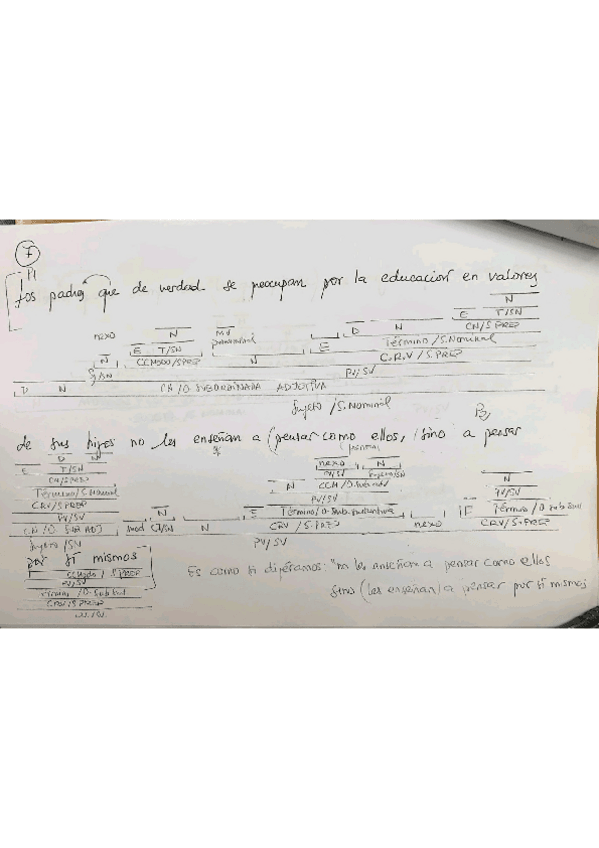 7
P1
Los padres que de verdad se preocupan por la educación en valores
N
N N MV D N E T/SN
nexo E T/SN pronominal E CN/S PREP
N CCMODO/S PREP N Término/S. Nominal
SJ/SN C.R.V/S PREP
PV/SV
D N CN/O SUBORDINADA ADJETIVA
Sujeto/S. Nominal
P2
de sus hijos no les enseñan a (pensar como ellos, sino a pensar
D N (piensan)
E T/SN nexo N N
CN/S PREP PV/SV Sujeto/SN PV/SV
Término/S Nominal N CCM/O. Subord adv
CRV/S PREP PV/SV
PV/SV E Término/O. Sub. sustantiva E Término/O Sub Sust
CN/O SUB ADJ mod CI/SN N CRV/S. PREP nexo CRV/S. PREP
Sujeto/SN PV/SV
por sí mismos
CCModo/S PREP
PV/SV
Término/O. Sub Sust
CRV/S PREP
PV/SV
Es como si dijéramos: "no les enseñan a pensar como ellos
sino (les enseñan) a pensar por sí mismos